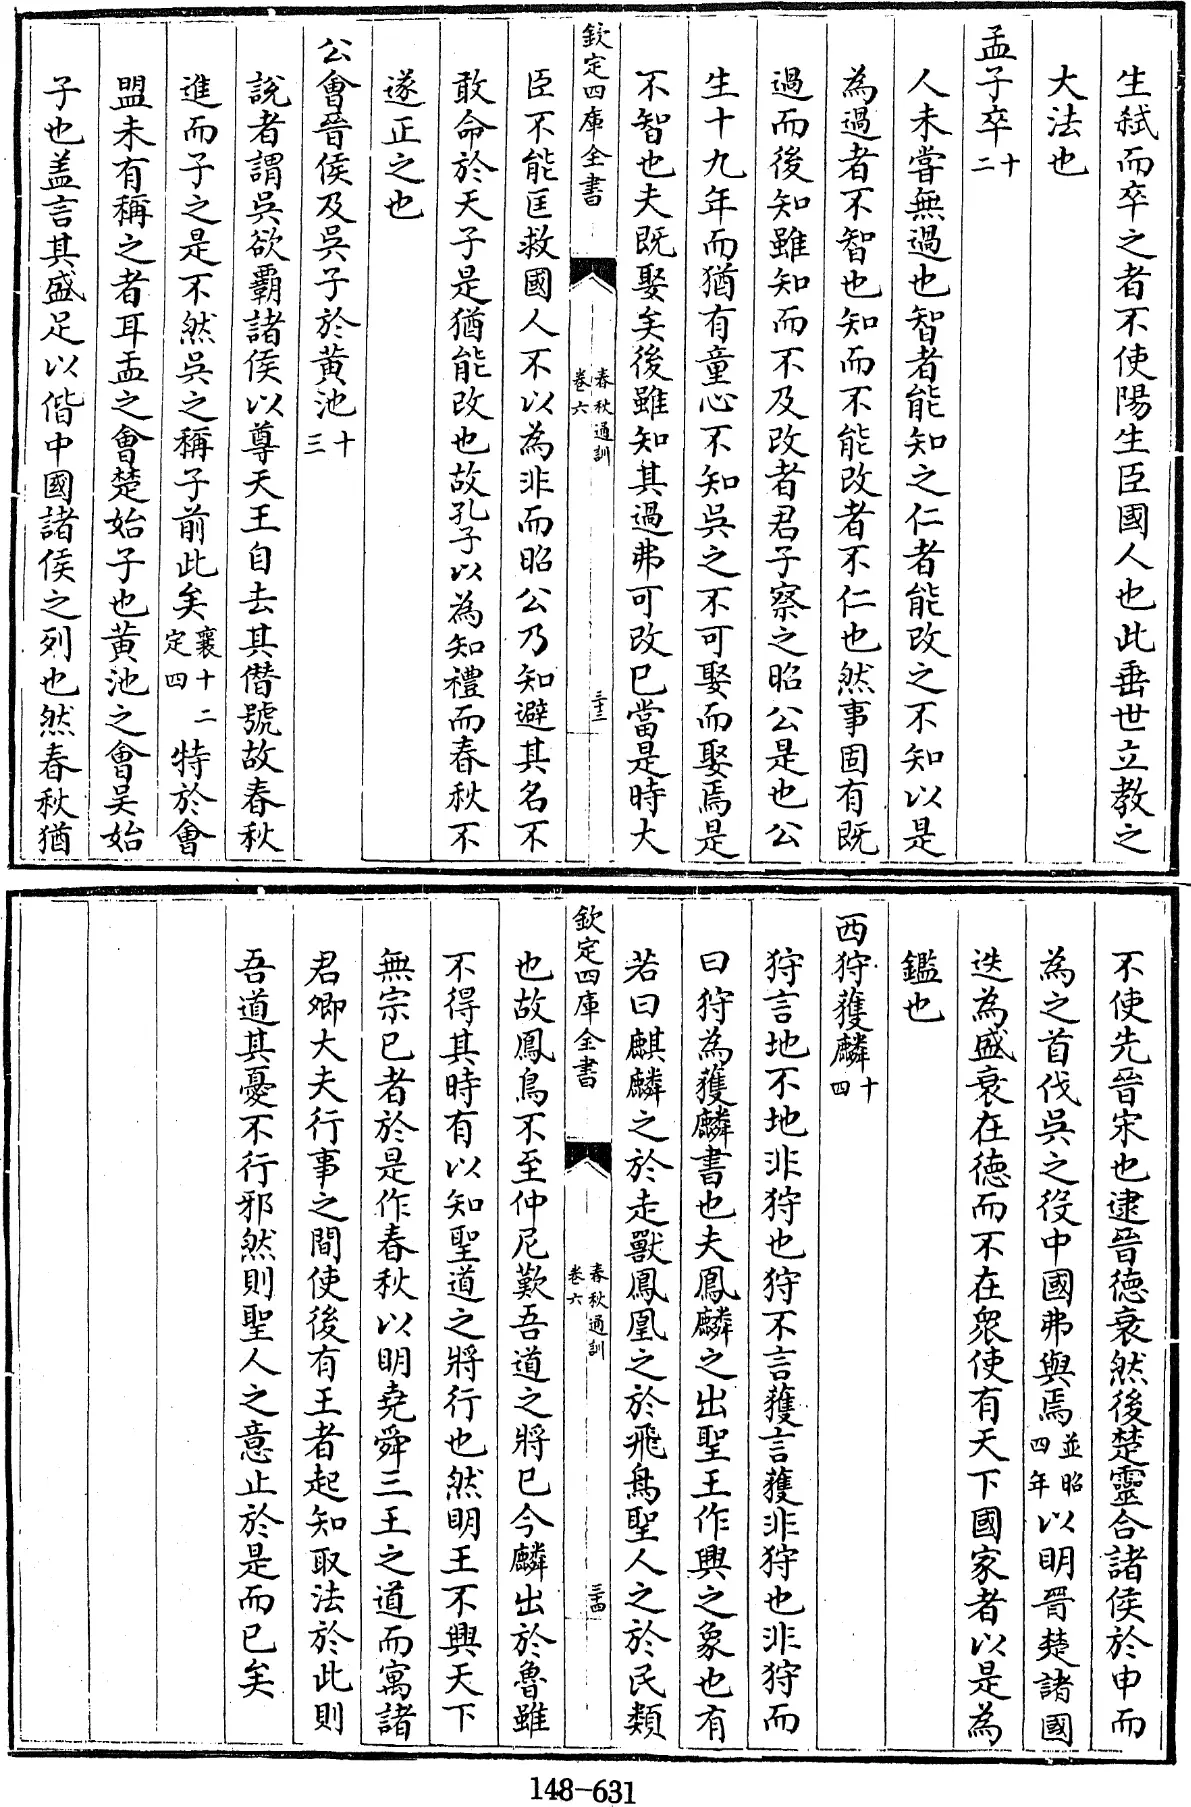 生弑而卒之者不使陽生臣國人也此垂世立教之
大法也
孟子卒十二
人未嘗無過也智者能知之仁者能改之不知以是
為過者不智也知而不能改者不仁也然事固有既
過而後知雖知而不及改者君子察之昭公是也公
生十九年而猶有童心不知吳之不可娶而娶焉是
不智也夫既娶矣後雖知其過弗可改已當是時大
欽定四庫全書
春秋通訓
卷六
三十三
臣不能匡救國人不以為非而昭公乃知避其名不
敢命於天子是猶能改也故孔子以為知禮而春秋不
遂正之也
公會晉侯及吳子於黃池十三
說者謂吳欲霸諸侯以尊天王自去其僭號故春秋
進而子之是不然吳之稱子前此矣襄十二定四特於會
盟未有稱之者耳盂之會楚始子也黃池之會吳始
子也盖言其盛足以偕中國諸侯之列也然春秋猶
不使先晉宋也逮晉德衰然後楚靈合諸侯於申而
為之首伐吳之役中國弗與焉並昭四年以明晉楚諸國
迭為盛衰在德而不在衆使有天下國家者以是為
鑑也
西狩獲麟十四
狩言地不地非狩也狩不言獲言獲非狩也非狩而
曰狩為獲麟書也夫鳳麟之出聖王作興之象也有
若曰麒麟之於走獸鳳凰之於飛鳥聖人之於民類
欽定四庫全書
春秋通訓
卷六
三十四
也故鳳鳥不至仲尼歎吾道之將已今麟出於魯雖
不得其時有以知聖道之將行也然明王不興天下
無宗已者於是作春秋以明堯舜三王之道而寓諸
君卿大夫行事之間使後有王者起知取法於此則
吾道其憂不行邪然則聖人之意止於是而已矣
148-631